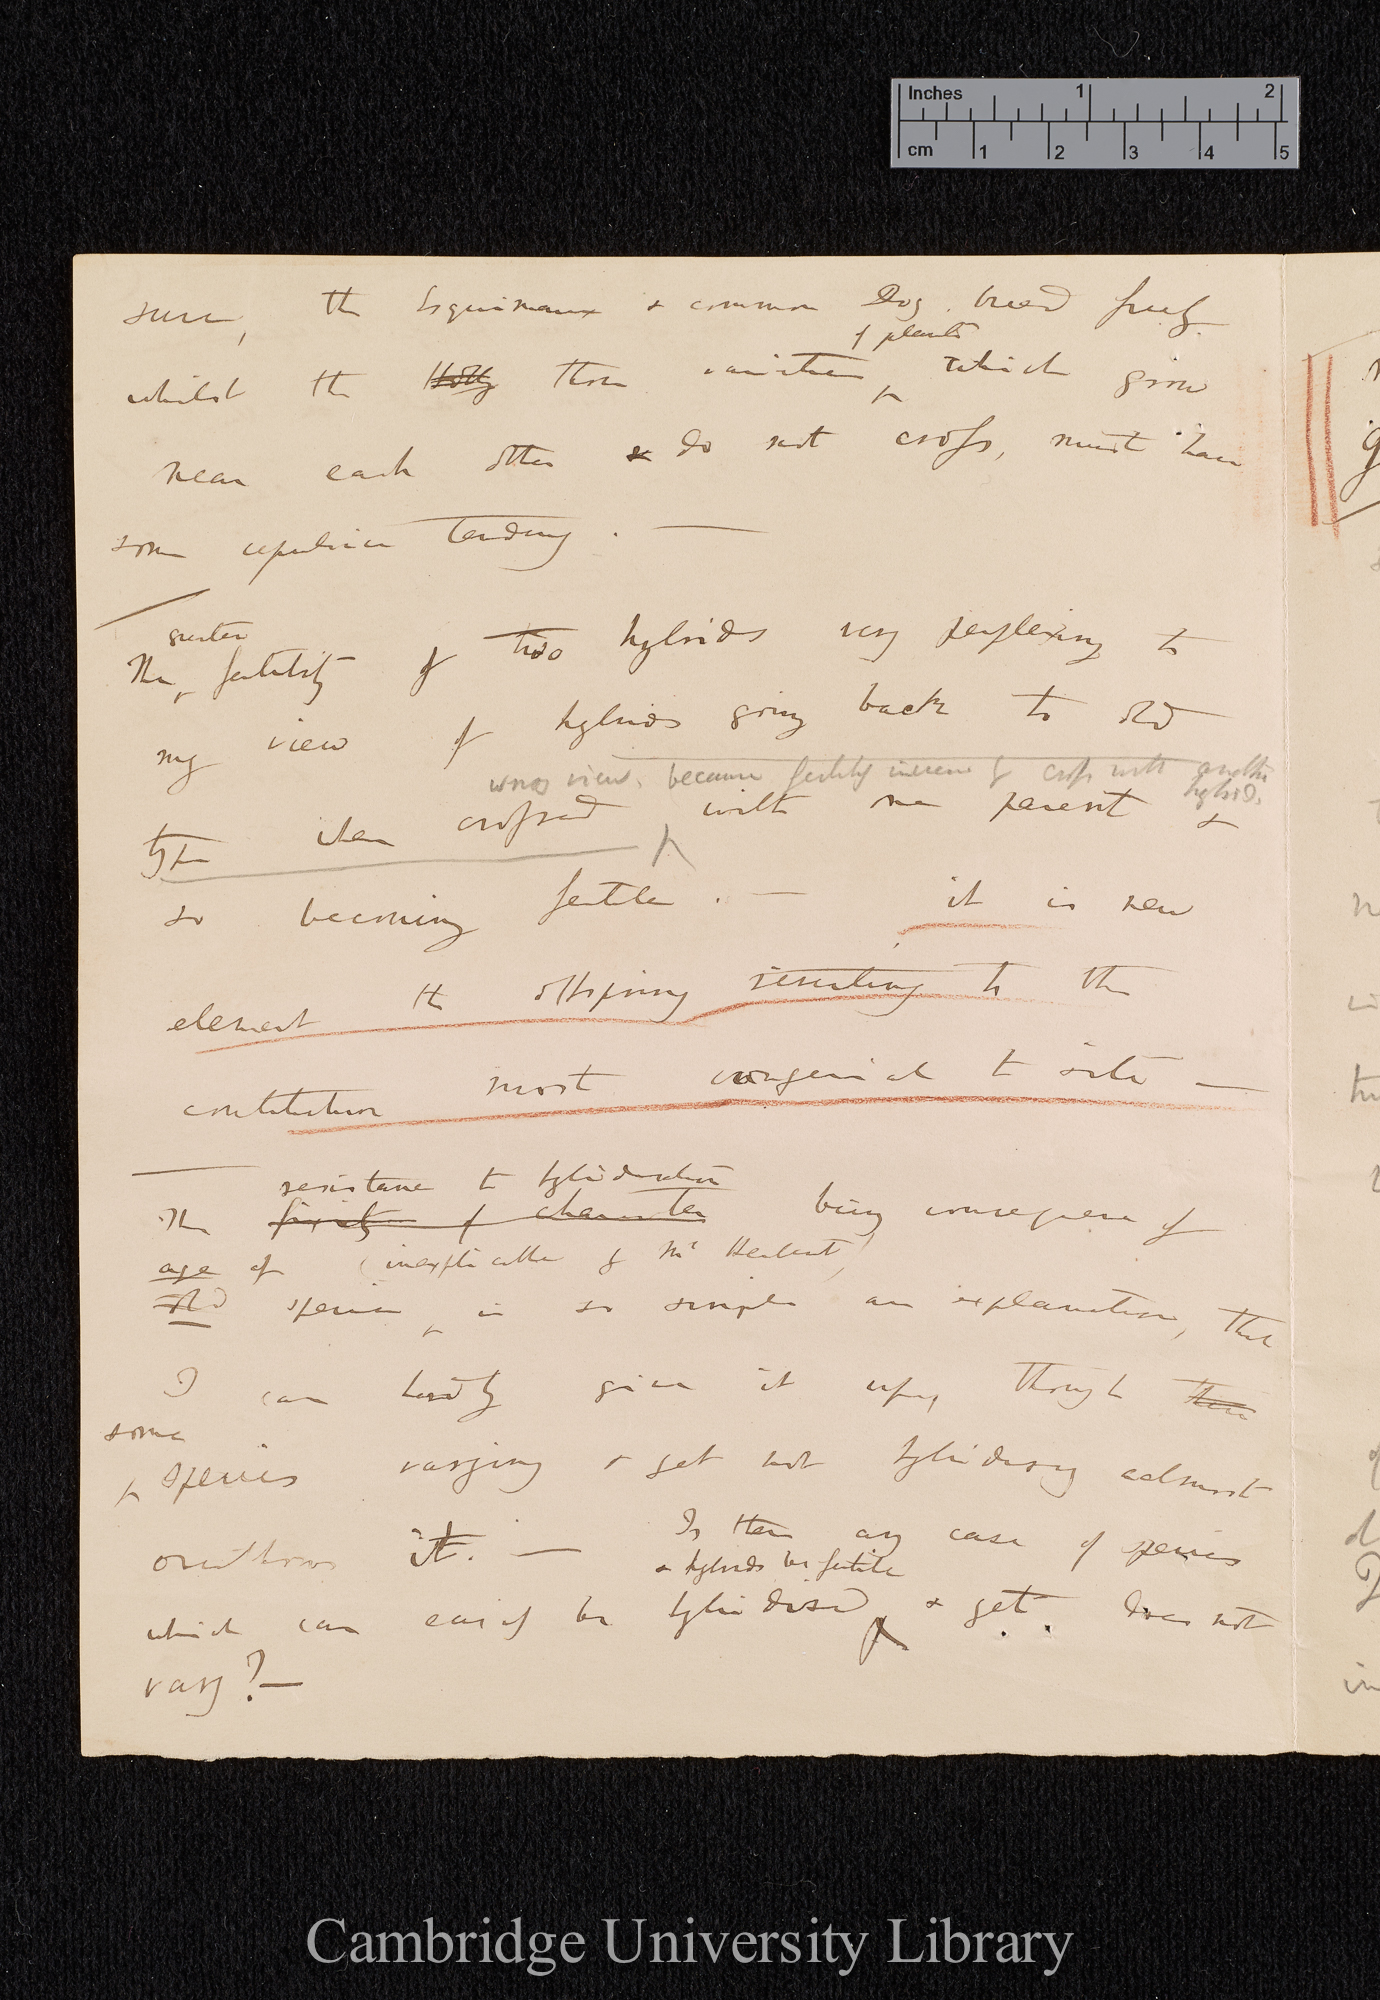 Inches 1 2
cm 1 2 3 4 5
sure, the Esquimaux & common Dog breed freely
of plants
whilst the those varieties which grow
near each other & do not cross, must have
some repulsive tendency. —
greater
The fertility of two hybrids very perplexing to
my view of hybrids going back to old
wrong view, because fertility increase if cross with another
hybrid.
type when crossed with one parent &
so becoming fertile. — it is new
element the offspring reverting to the
constitution most congenial to site —
resistance to hybridisation
The fixity of character being consequence of
age of (inexplicable by Mr Herbert)
old species, is so simple an explanation, that
I can hardly give it up, though there
some
species varying & yet not hybridising almost
overthrows it. — Is there any case of species
& hybrids be fertile
which can easily be hybridised & yet does not
vary? —
Cambridge University Library